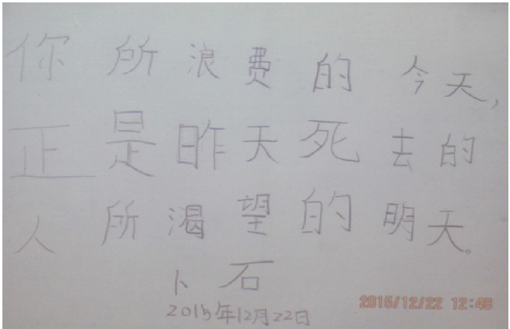 你所浪费的今天,
正是昨天死去的
人所渴望的明天。
卜石
2015年12月22日
2015/12/22 12:48